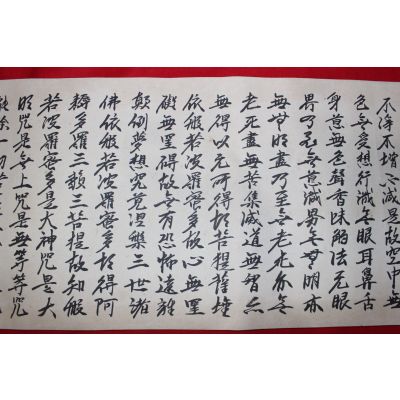 不淨不增不減是故空中無
色無受想行識無眼耳鼻舌
身意無色聲香味觸法无眼
界乃至無意識界無無明亦
無無明盡乃至無老死亦無
老死盡無苦集滅道無智亦
無得以无所得故菩提薩埵
依般若波羅蜜多故心無罣
礙無罣礙故無有恐怖遠離
顛倒夢想究竟涅槃三世諸
佛依般若波羅蜜多故得阿
耨多羅三藐三菩提故知般
若波羅蜜多是大神咒是大
明咒是無上咒是無等等咒
能除一切苦